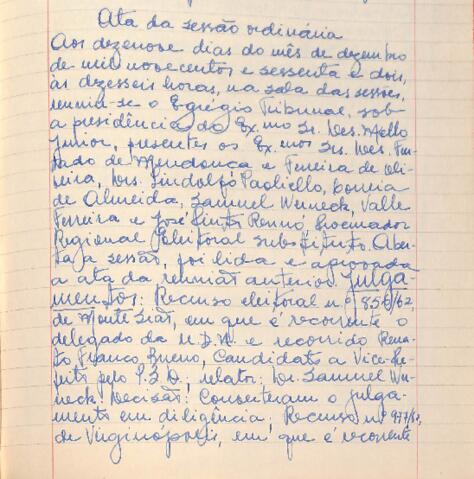 Ata da sessão ordinária
Aos dezenove dias do mês de dezembro
de mil novecentos e sessenta e dois,
às dezesseis horas, na sala das sessões,
reuniu-se o Egrégio Tribunal, sob
a presidência do Ex.mo Sr. Des. Mello
Junior, presentes os Ex.mos Srs. Des. Fur-
tado de Mendonça e Ferreira de Oli-
veira, Drs. Lindolfo Paoliello, Correia
de Almeida, Samuel Werneck, Valle
Ferreira e José Pinto Rennó, Procurador
Regional Eleitoral substituto. Aber-
ta a sessão, foi lida e aprovada
a ata da reunião anterior. Julga-
mentos: Recurso eleitoral nº 856/62,
de Monte Sião, em que é recorrente o
delegado da U.D.N. e recorrido Rena-
to Franco Bueno, candidato a Vice-Pre-
feito pelo P.S.D., relator: Dr. Samuel Wer-
neck. Decisão: Converteram o julga-
mento em diligência; Recurso nº 977/62,
de Virginópolis, em que é recorrente